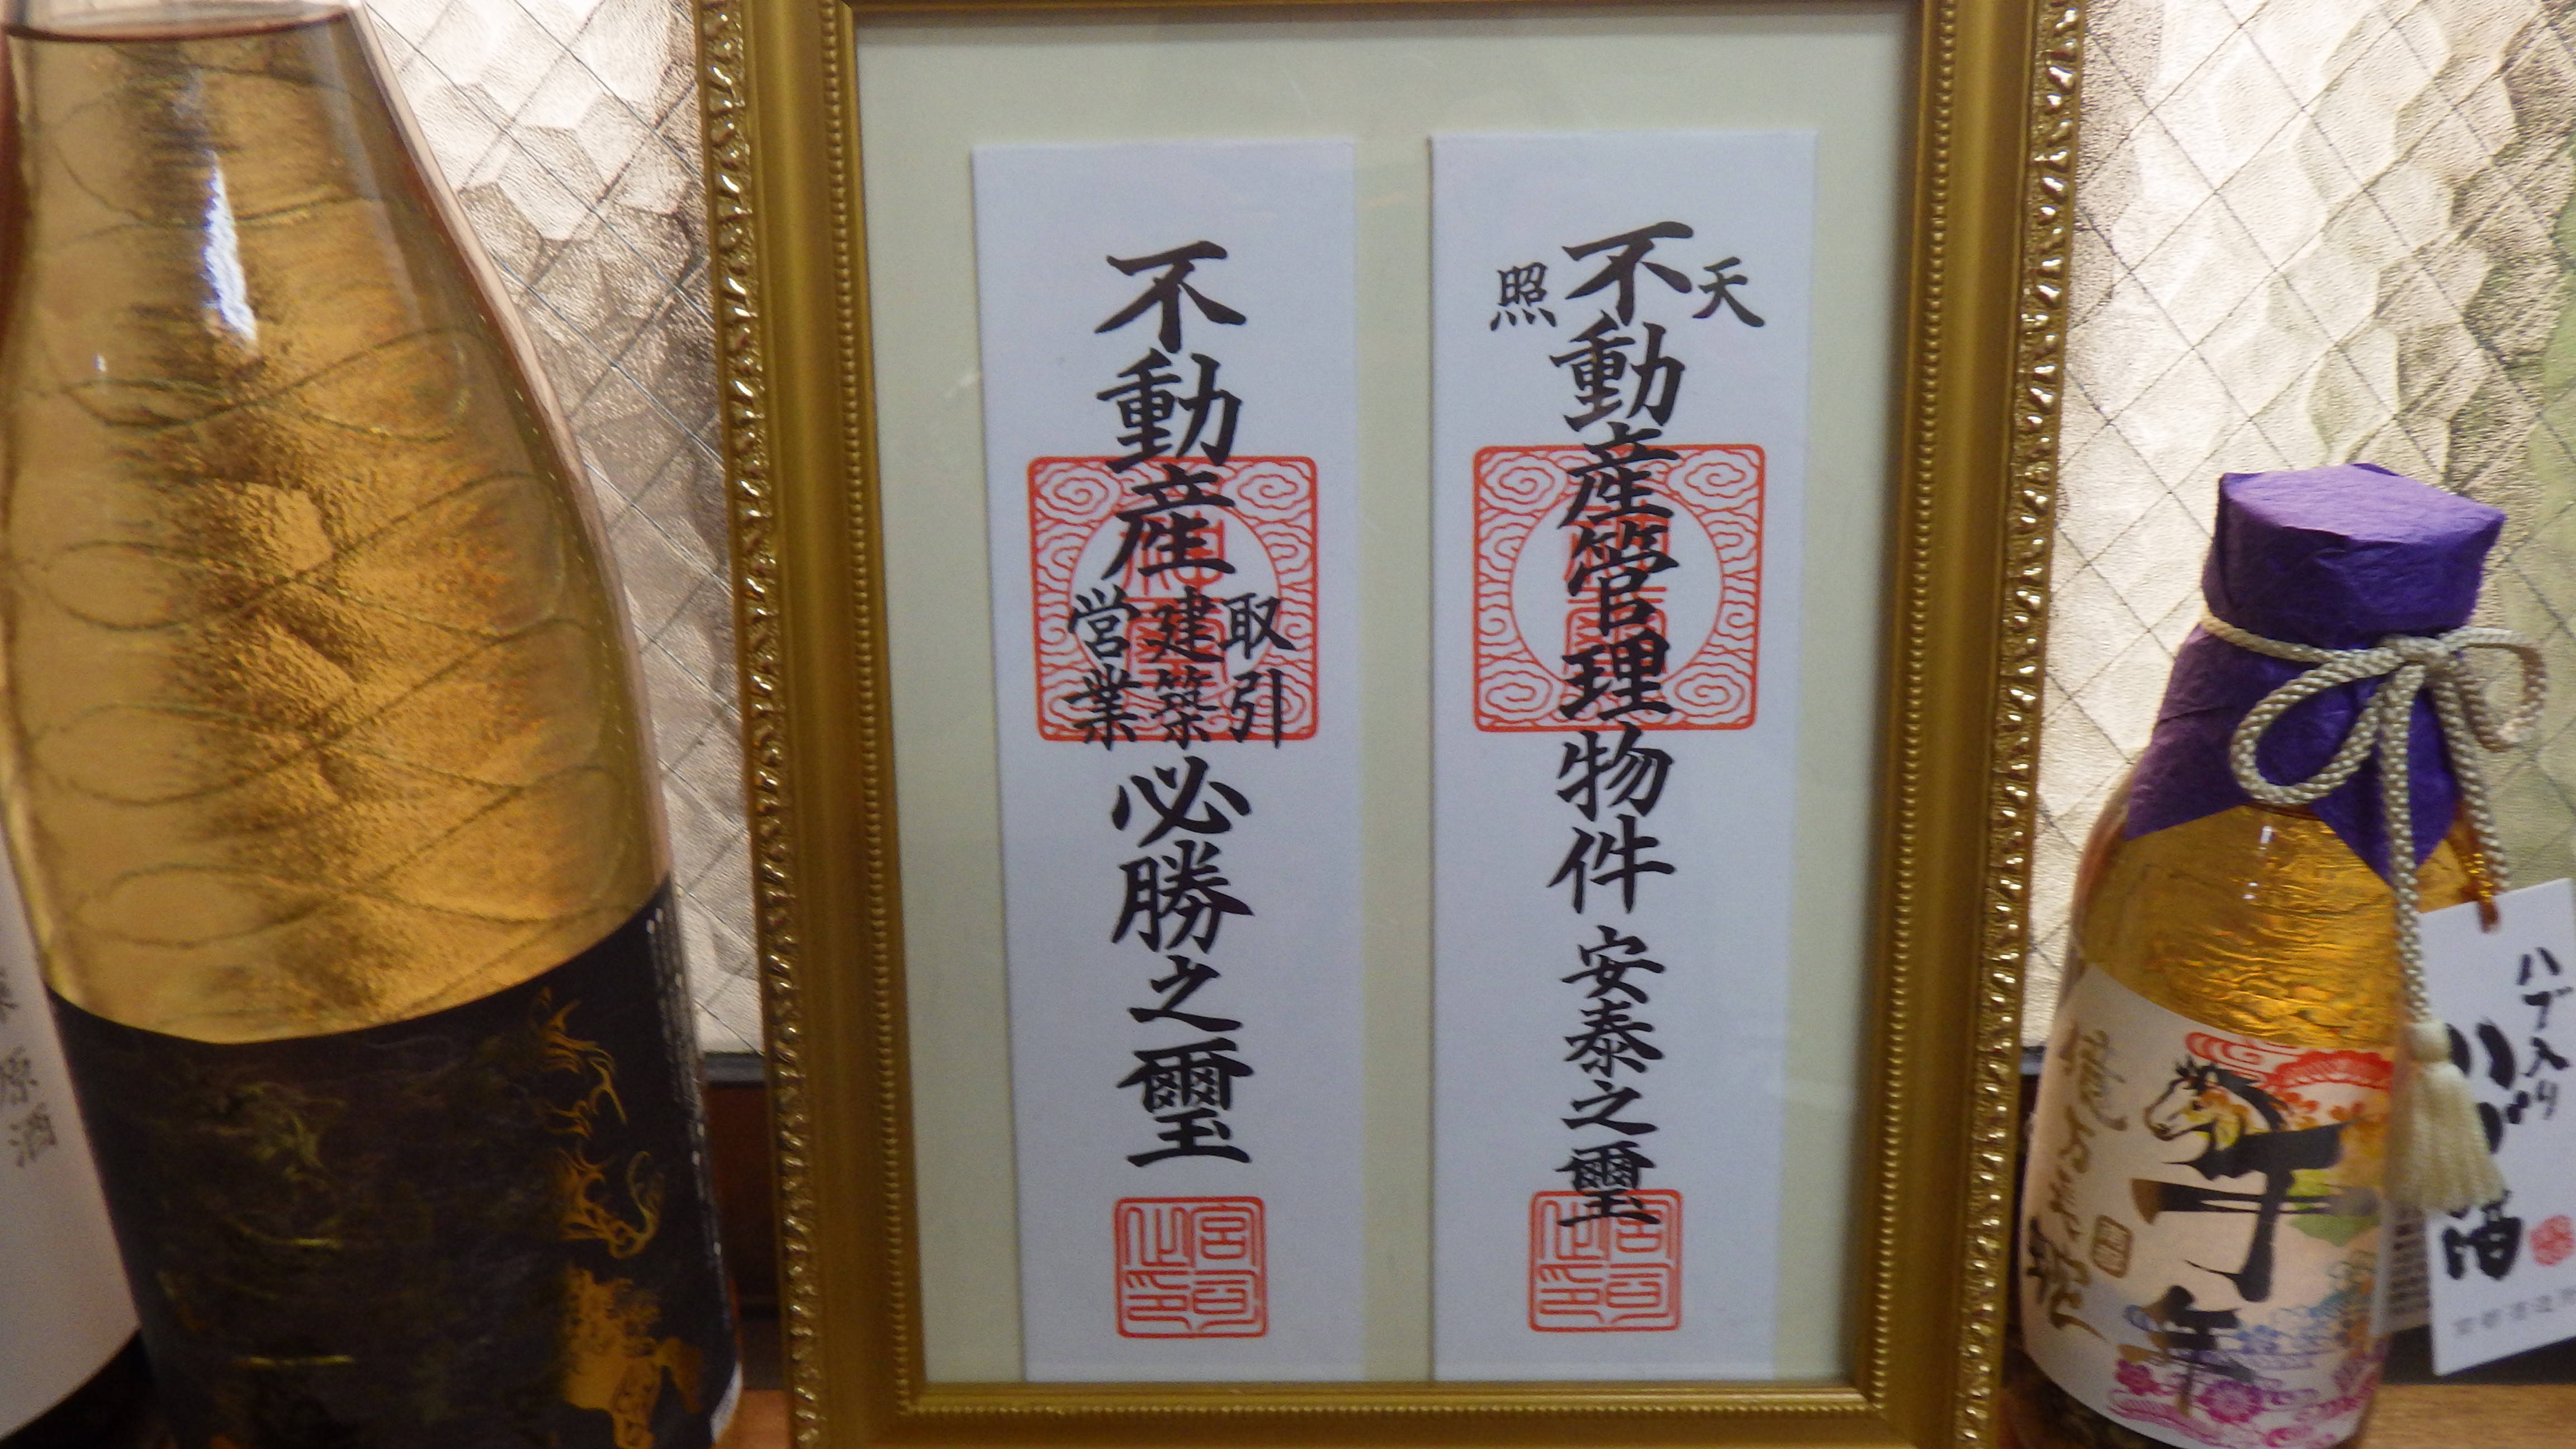 天照
不動産管理物件安泰之璽
不動産
取引
建築
営業
必勝之璽
宮司
之印
原酒
午年
ハブ入り
酒